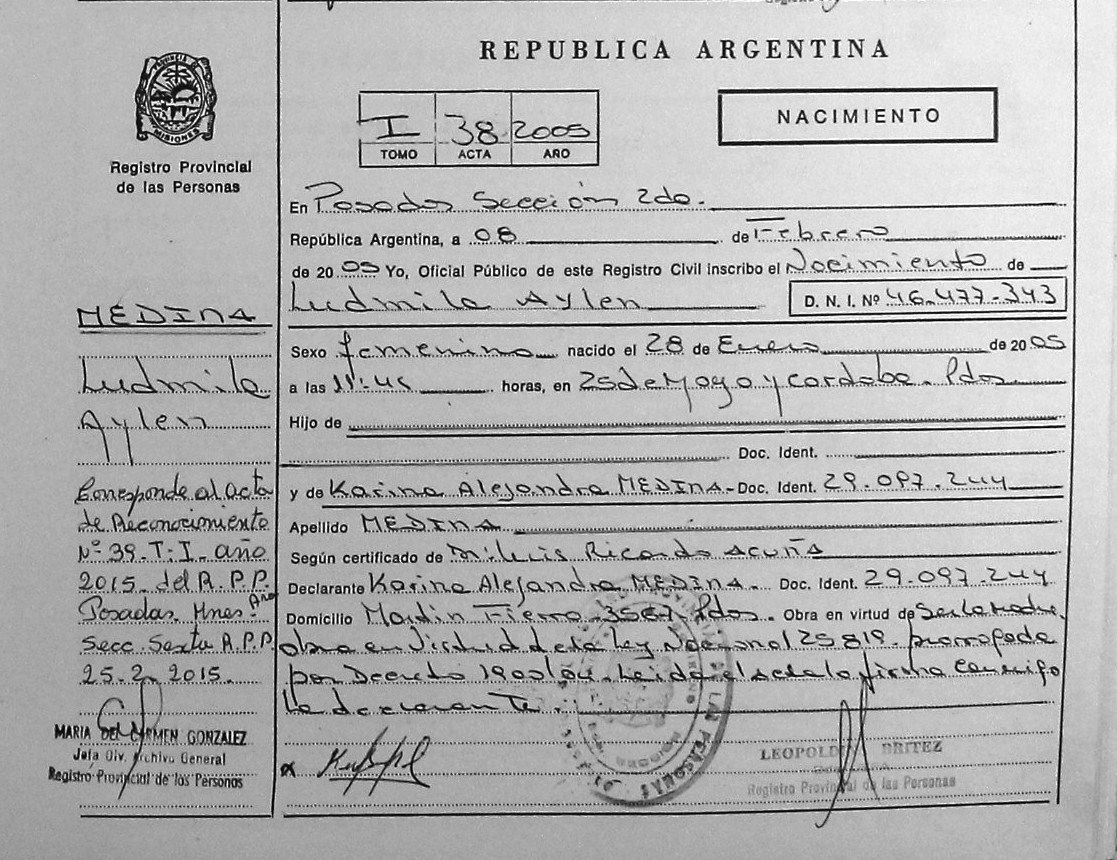 REPUBLICA ARGENTINA
PROVINCIA DE
MISIONES
Registro Provincial
de las Personas
I 38 2005
TOMO ACTA AÑO
NACIMIENTO
En Posadas Sección 2da.
República Argentina, a 08 de Febrero
de 20 05 Yo, Oficial Público de este Registro Civil inscribo el Nacimiento de
Ludmila Aylen D. N. I. Nº 46.477.343
Sexo femenino nacido el 28 de Enero de 20 05
a las 11:45 horas, en 25 de Mayo y cordoba. Pdas
Hijo de
Doc. Ident.
y de Karina Alejandra MEDINA - Doc. Ident. 29.097.244
Apellido MEDINA
Según certificado de Ricardo Acuña
Declarante Karina Alejandra MEDINA. Doc. Ident. 29.097.244
Domicilio Martin Fierro 3567 Pdas. Obra en virtud de Ser la madre.
obra en Virtud de la Ley Nacional 25819 prorrogada
por Decreto 1900/04. Leida el acta la firma Conmigo
la declarante.
MEDINA
Ludmila
Aylen
Corresponde al acta
de Reconocimiento
Nº 39. T: I. año
2015. del R.P.P.
Posadas. Mnes.
Secc. Sexta R.P.P.
25.2.2015.
MARIA DEL CARMEN GONZALEZ
Jefa Div. Archivo General
Registro Provincial de las Personas
LAS PERSONAS
LEOPOLDO BRITEZ
Registro Provincial de las Personas